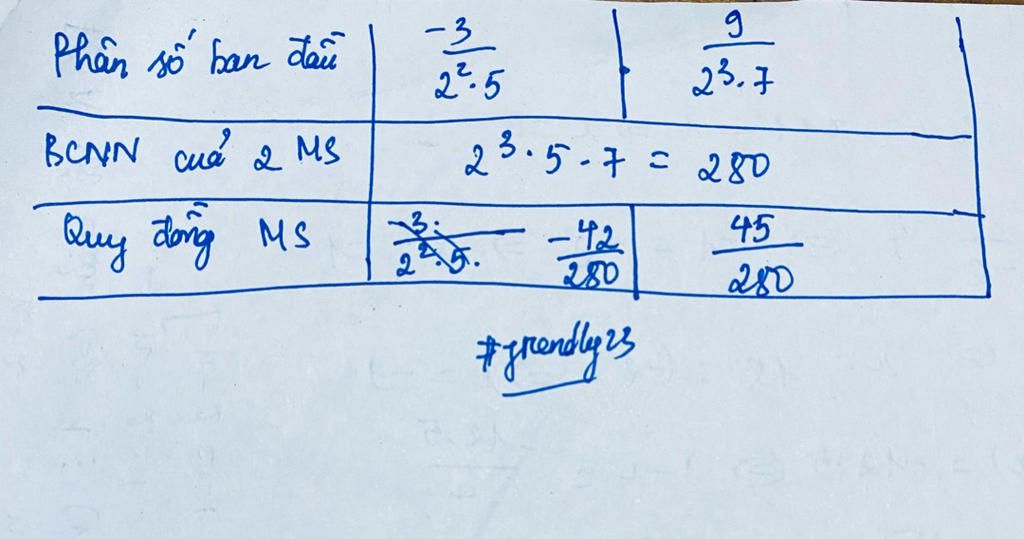 Phân số ban đầu | -3/(2²·5) | 9/(2³·7)
BCNN cuả 2 MS | 2³·5·7 = 280
Quy đồng MS | -3·/(2²·5· -42/280 | 45/280
#friendly23